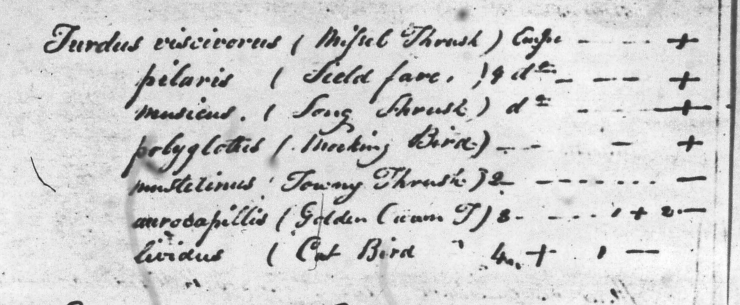 Turdus viscivorus ( Missel Thrush ) - - - +
pilaris ( Field fare. ) 4 do - - - +
musicus. ( Song Thrush ) do - - - +
polyglottus ( Mocking Bird ) - - - +
mustelinus ( Tawny Thrush ) 2 - - - - - —
aurocapillis ( Golden Crown T ) 3 - - - - 1 + 2 —
lividus ( Cat Bird " 4 + 1 —